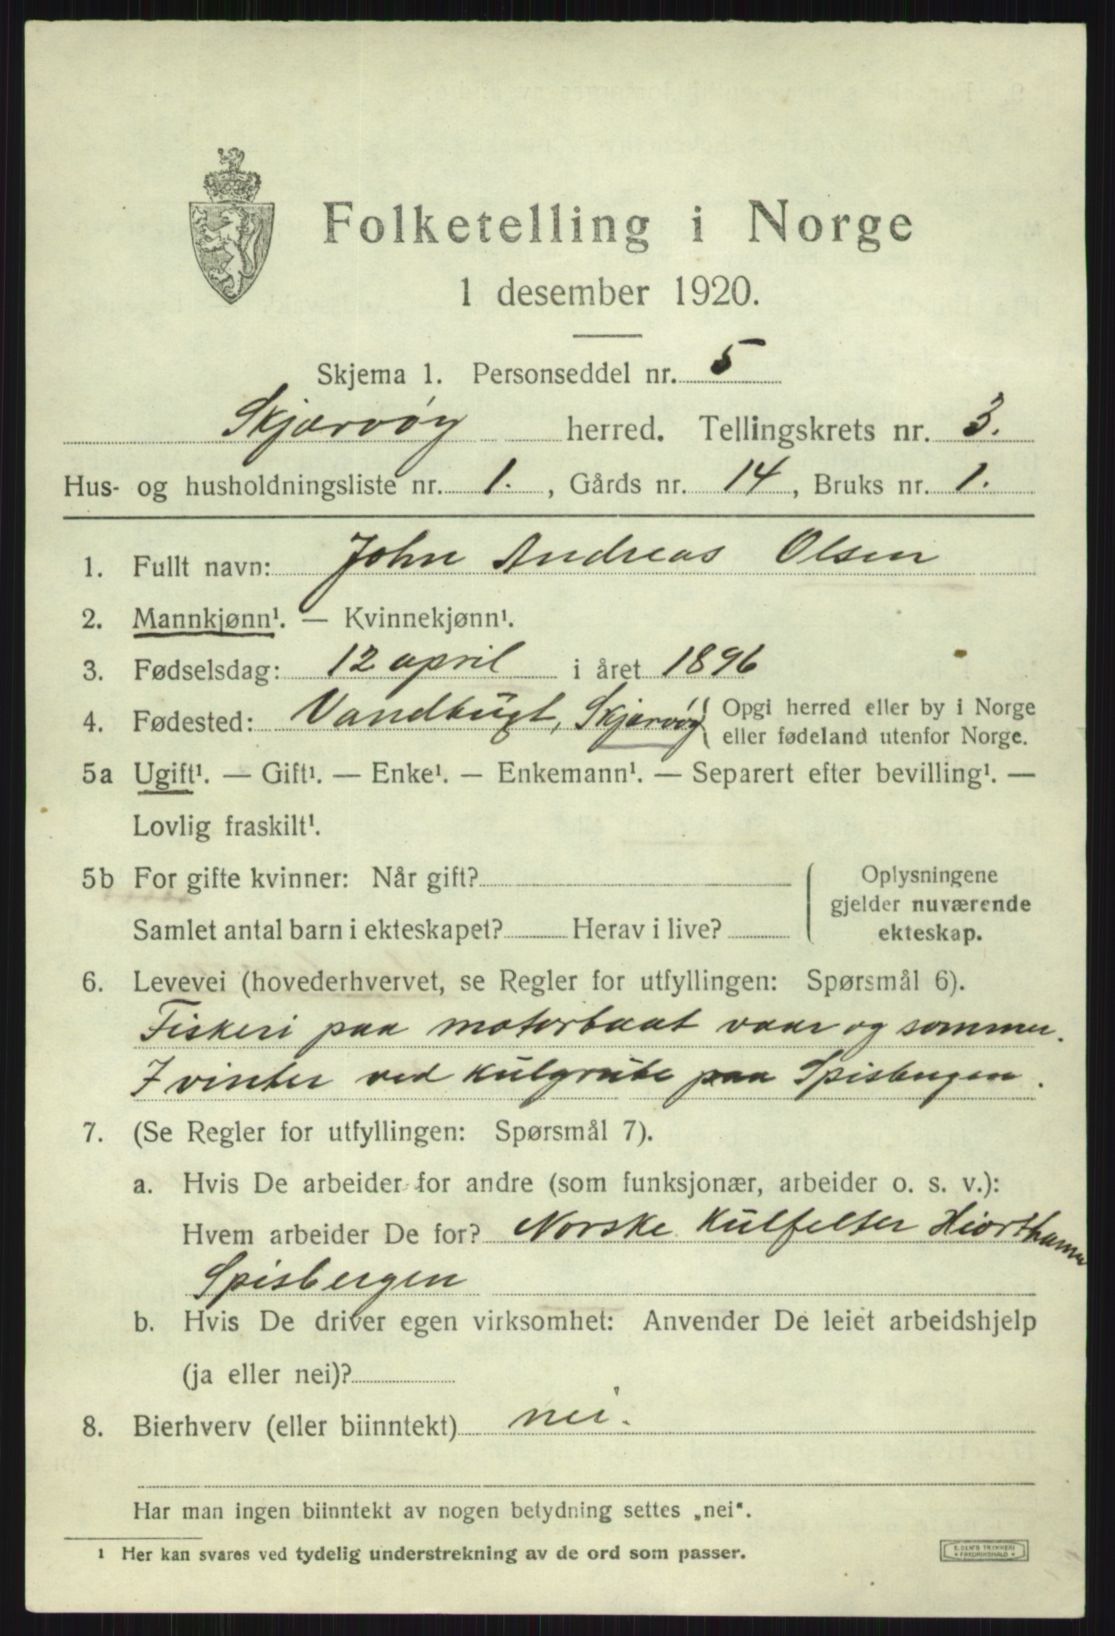 Folketelling i Norge
1 desember 1920.
Skjema 1. Personseddel nr. 5
Skjærvøy herred. Tellingskrets nr. 3.
Hus- og husholdningsliste nr. 1., Gårds nr. 14, Bruks nr. 1.
1. Fullt navn: John Andreas Olsen
2. Mannkjønn¹. — Kvinnekjønn¹.
3. Fødselsdag: 12 april i året 1896
4. Fødested: Vandbugt, Skjærvøy { Opgi herred eller by i Norge
eller fødeland utenfor Norge.
5a Ugift¹. — Gift¹. — Enke¹. — Enkemann¹. — Separert efter bevilling¹. —
Lovlig fraskilt¹.
5b For gifte kvinner: Når gift?
Samlet antal barn i ekteskapet? Herav i live?
Oplysningene
gjelder nuværende
ekteskap.
6. Levevei (hovederhvervet, se Regler for utfyllingen: Spørsmål 6).
Fiskeri paa motorbaat vaar og sommer.
I vinter ved kulgrube paa Spisbergen.
7. (Se Regler for utfyllingen: Spørsmål 7).
a. Hvis De arbeider for andre (som funksjonær, arbeider o. s. v.):
Hvem arbeider De for? Norske Kulfelter Hiorthamn
Spisbergen
b. Hvis De driver egen virksomhet: Anvender De leiet arbeidshjelp
(ja eller nei)?
8. Bierhverv (eller biinntekt) nei.
Har man ingen biinntekt av nogen betydning settes „nei".
¹ Her kan svares ved tydelig understrekning av de ord som passer.